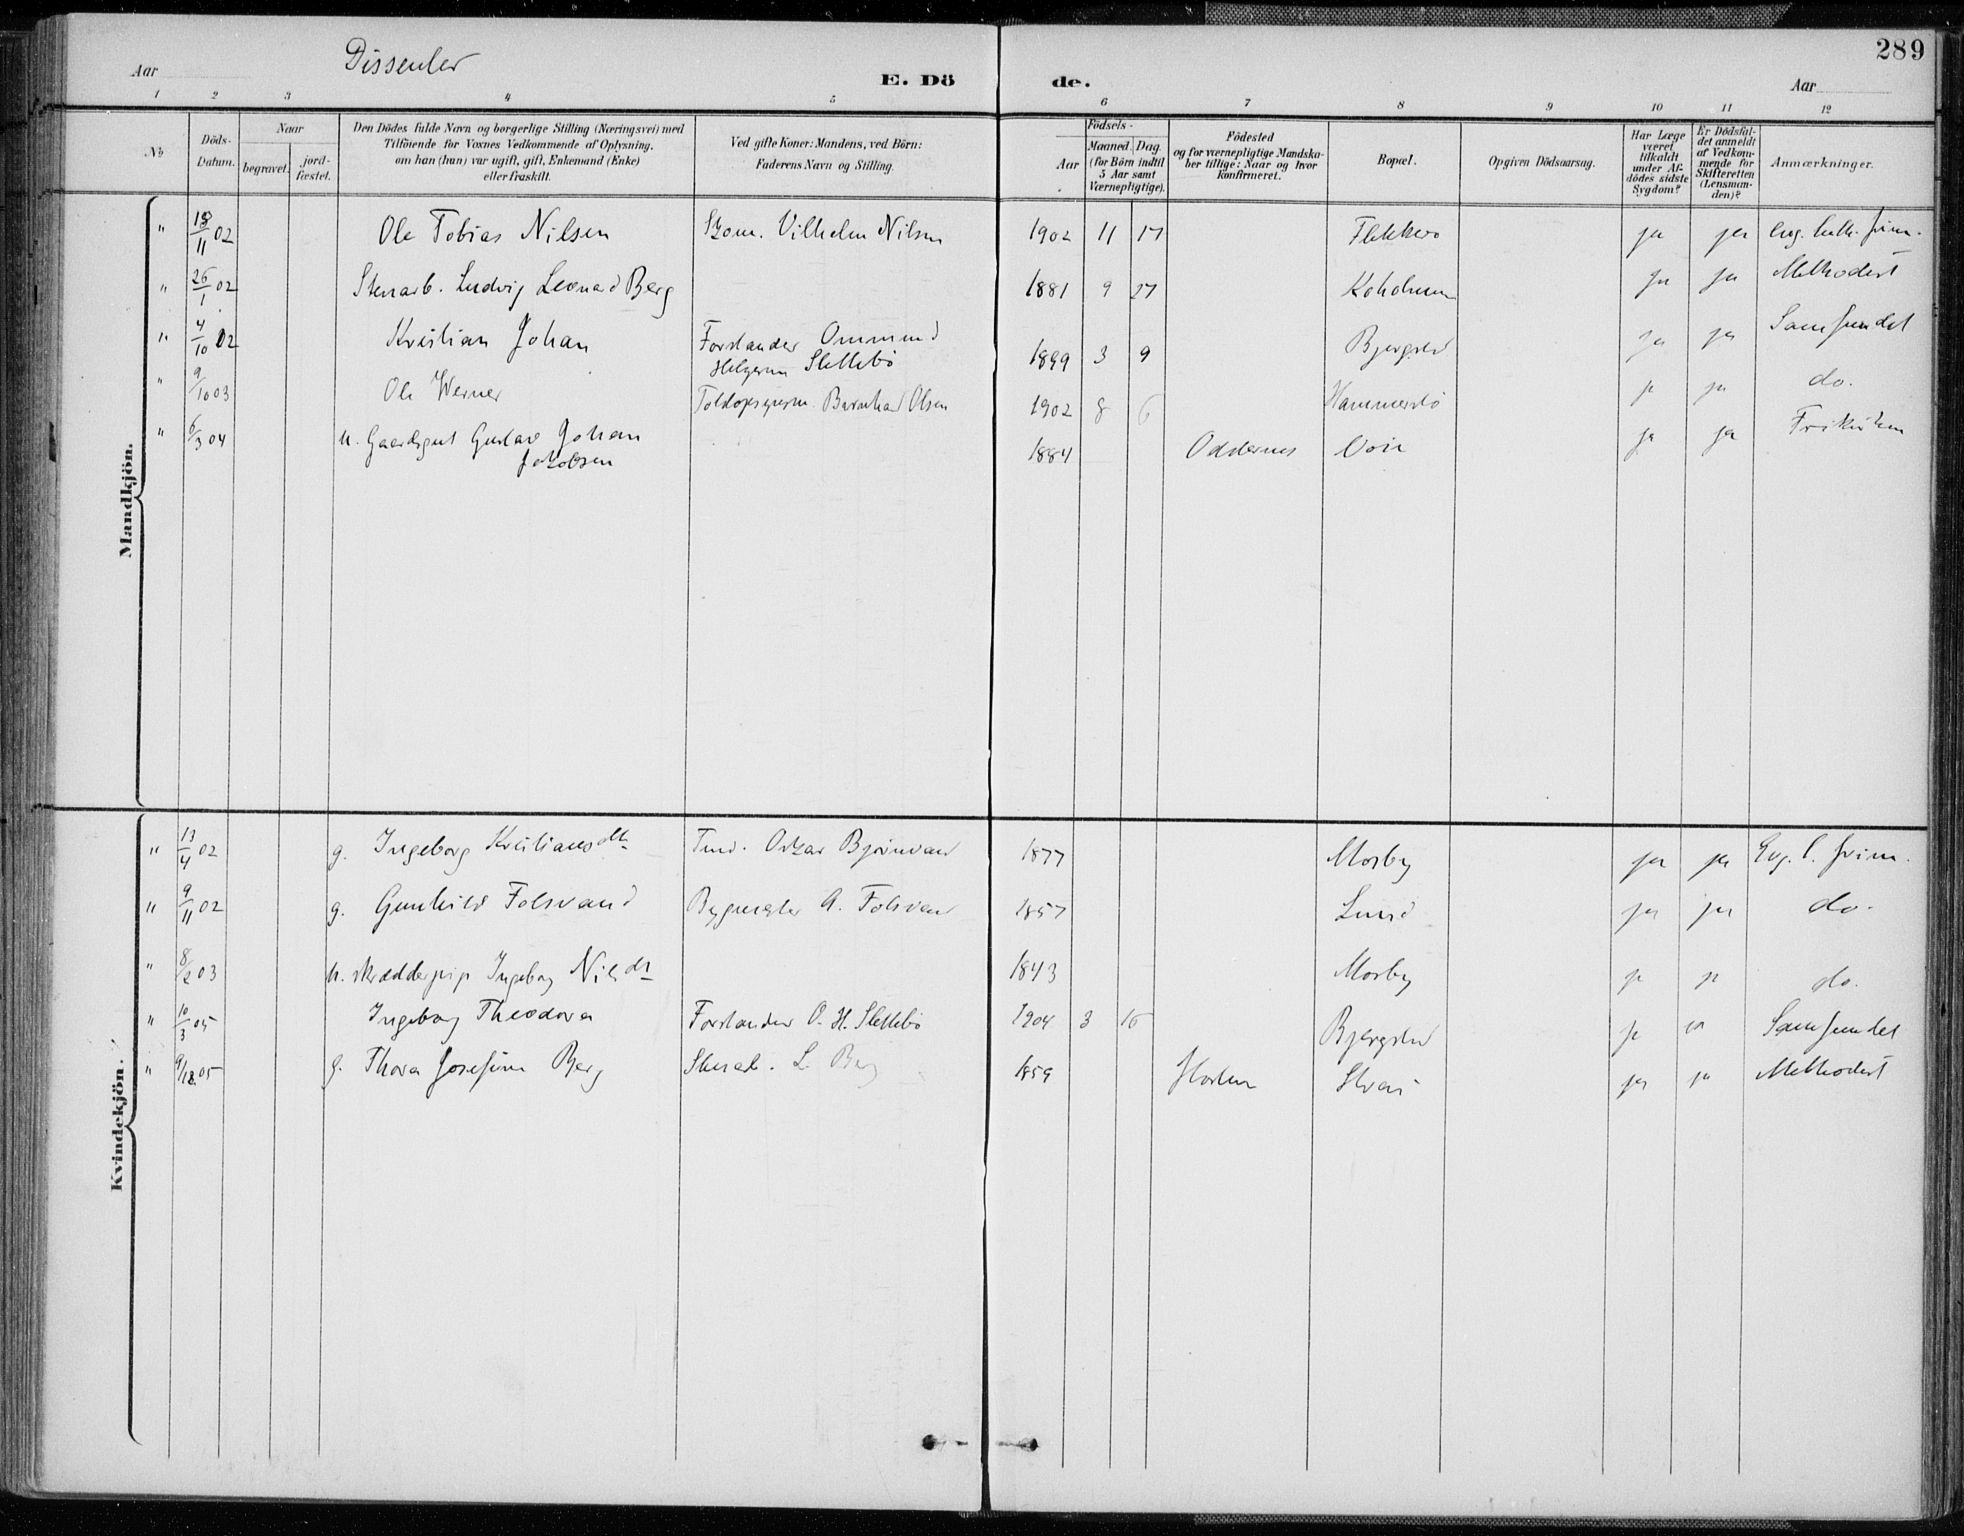 289
Aar Dissenter E. Dö de. Aar
1 2 3 4 5 6 7 8 9 10 11 12
No
Döds-Datum.
Naar
begravet.
jord-fæstet.
Den Dödes fulde Navn og borgerlige Stilling (Næringsvei) med
Tilföiende for Voxnes Vedkommende af Oplysning.
om han (hun) var ugift, gift, Enkemand (Enke)
eller fraskilt.
Ved gifte Koner: Mandens, ved Börn:
Faderens Navn og Stilling.
Födsels-
Aar
Maaned. Dag.
(for Börn indtil
5 Aar samt
Værnepligtige).
Födested
og for værnepligtige Mandska-
ber tillige: Naar og hvor
konfirmeret.
Bopæl.
Opgiven Dödsaarsag.
Har Læge
været
tilkaldt
under Af-
dödes sidste
Sygdom?
Er Dödsfal-
det anmeldt
af Vedkom-
mende for
Skifteretten
(Lensman-
den)?
Anmærkninger.
Mandkjön.
" 18/11 02 Ole Tobias Nilsen Vilhelm Nilsen 1902 11 17 Flekkerø ja ja
" 26/1 02 Stenarb. Ludvig Leonard Berg 1881 9 27 ja ja Methodist
" 4/10 02 Kristian Johan Forstander Ommund 1899 3 9 Bjergsted ja ja Samfundet
Helgesen Slettebö
" 9/10 03 Ole Werner Toldopsynsm. Barnhard Olsen 1902 8 6 ja ja do.
" 6/3 04 u. Gaardsgut Gustav Johan 1884 Oddernes ja ja Frikirken
Jakobsen
Kvindekjön.
" 13/4 02 g. Ingeborg Kristiansdtr Oskar Bjørnvand 1877 Mosby ja ja Evg. l. frim.
" 9/11 02 g. Gunhild Folsvand Bygmester A. Folsvand 1857 Lund ja ja do.
" 8/2 03 u. skrædderpige Ingeborg Nilsdtr 1843 Mosby ja ja do.
" 10/3 05 Ingeborg Theodora Forstander O. H. Slettebø 1904 3 16 Bjergsted ja ja Samfundet
" 9/12 05 g. Thora Josefine Berg Stenarb. L. Berg 1859 ja ja Methodist